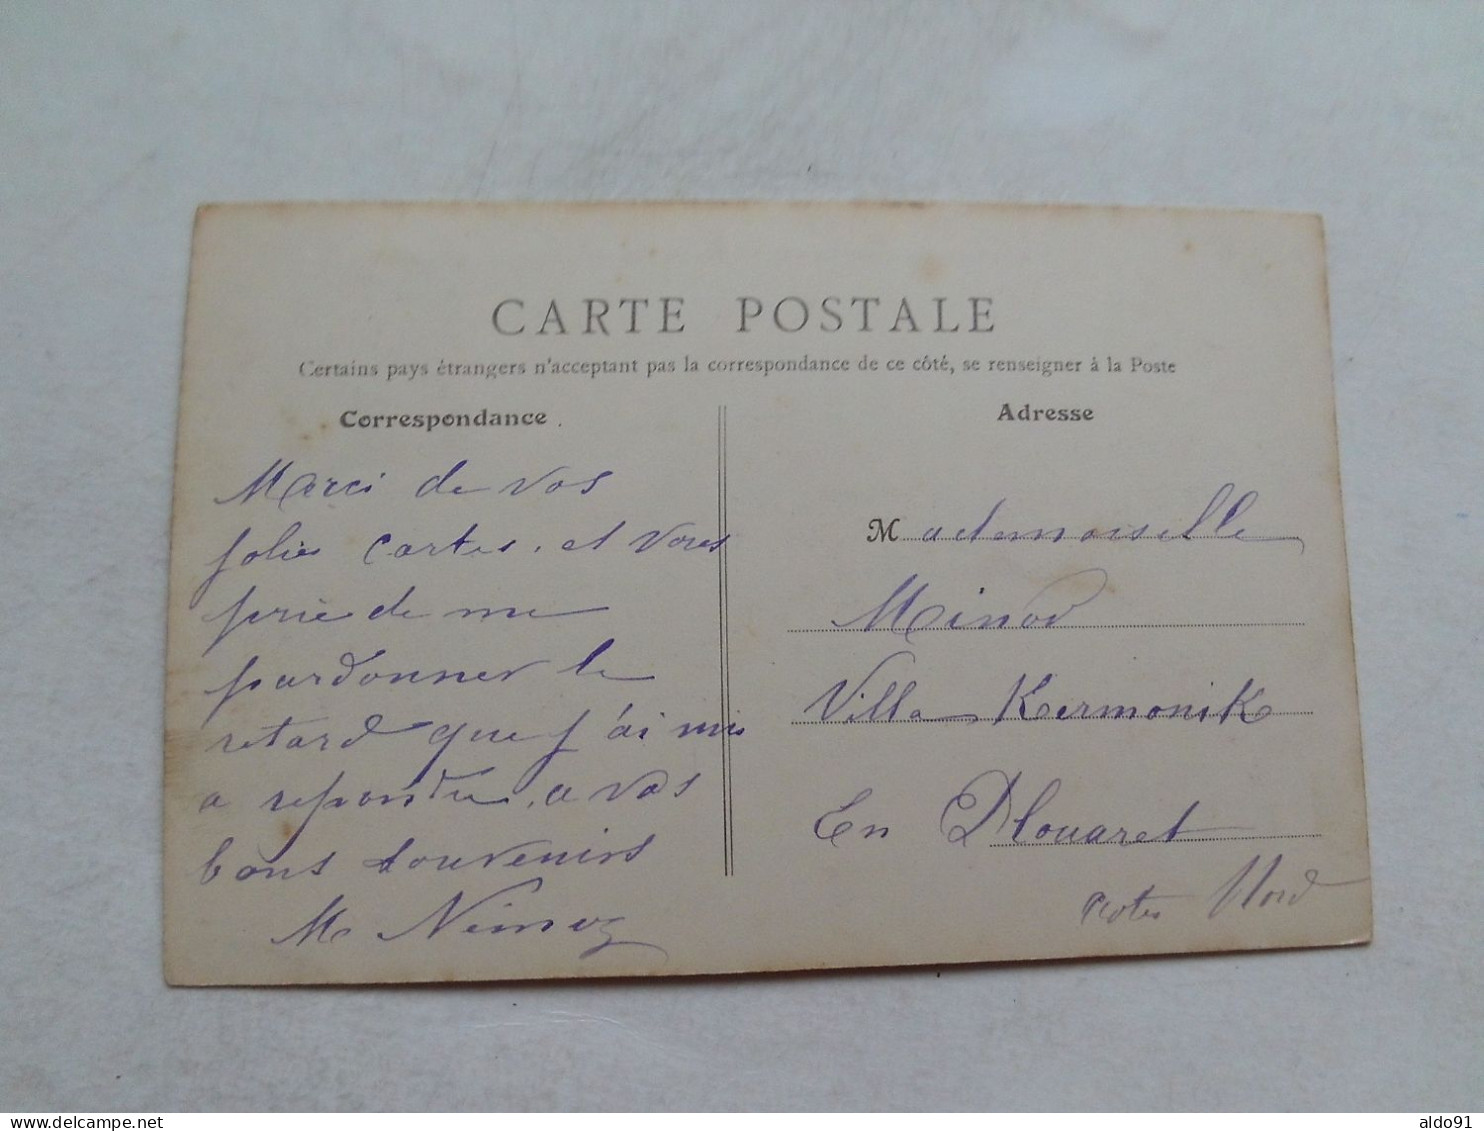 CARTE POSTALE
Certains pays étrangers n'acceptant pas la correspondance de ce côté, se renseigner à la Poste
Correspondance
Adresse
Merci de vos
jolies cartes. et vous
prie de me
pardonner le
retard que j'ai mis
a repondre. a vos
bons souvenirs
M
Mademoiselle
Minod
Villa Kermonik
En Plouaret
Cotes Nord
aldo91